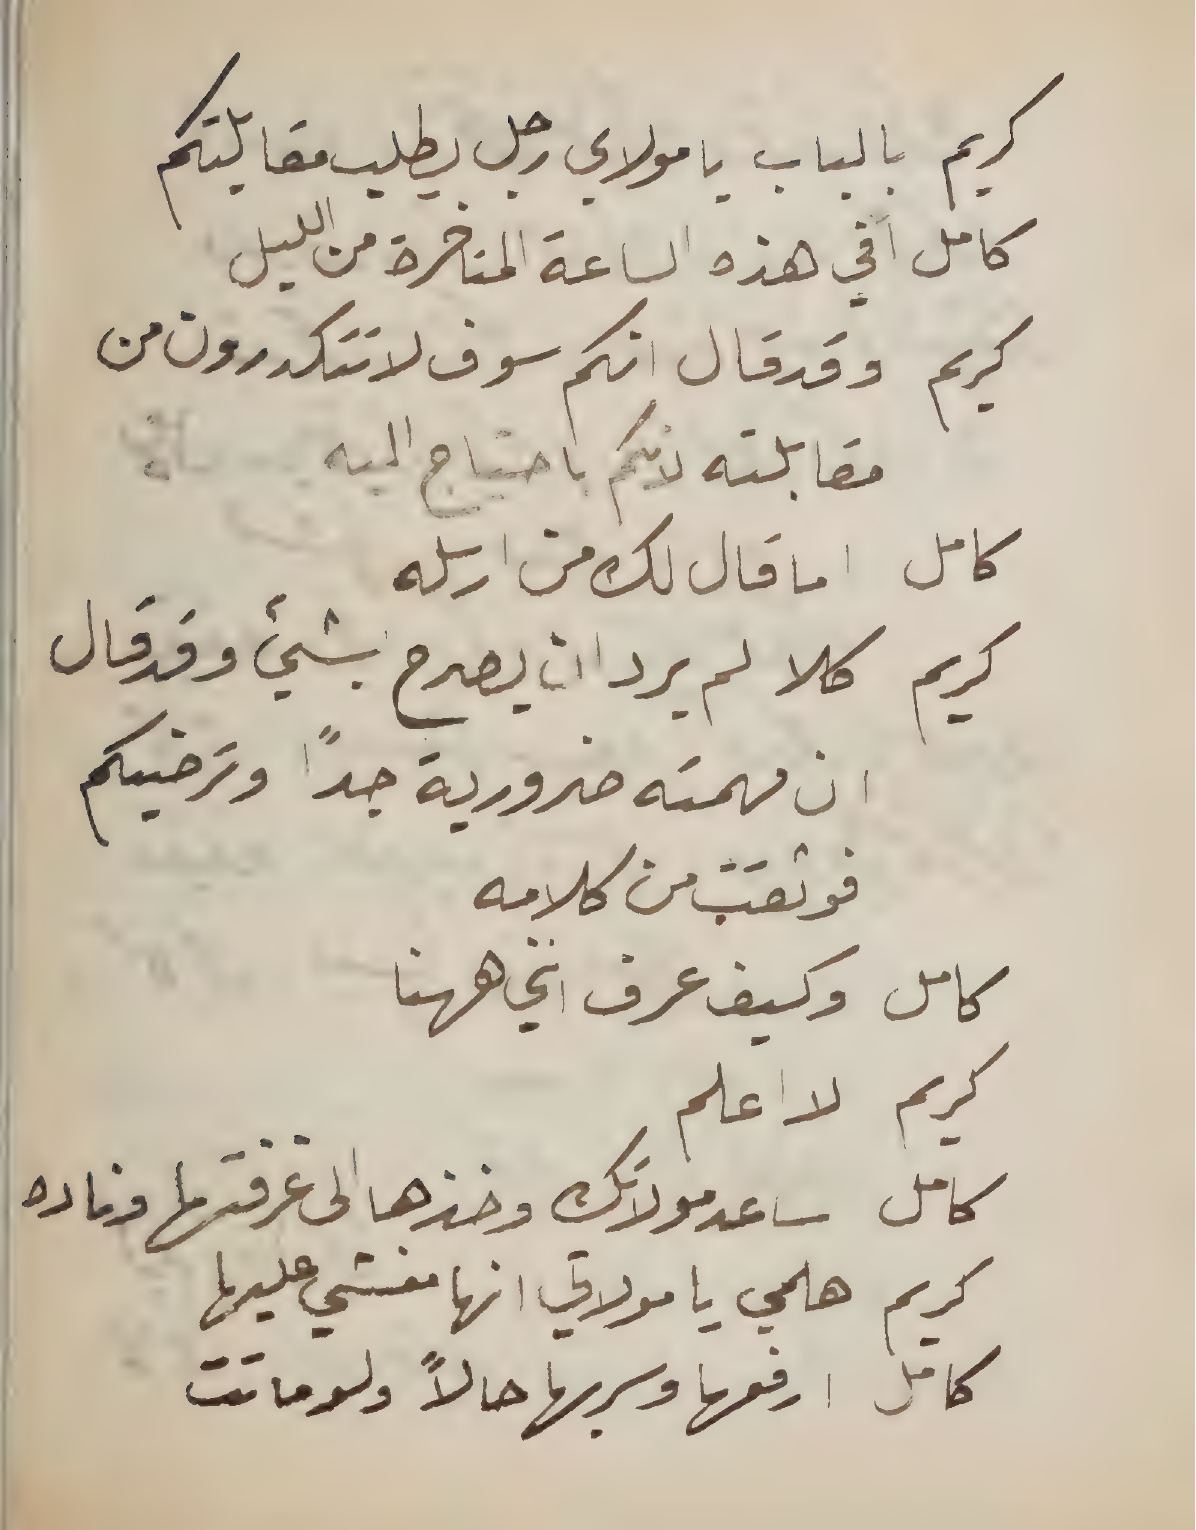 كريم بالباب يا مولاي رجل يطلب مقابلتكم
كامل أفي هذه الساعة المتأخرة من الليل
كريم وقد قال انكم سوف لا تتكدرون من
مقابلته لانكم باحتياج اليه
كامل اما قال لك من ارسله
كريم كلا لم يرد ان يصرح بشيئ وقد قال
ان مهمته ضرورية جداً وترضيكم
فوثقت من كلامه
كامل وكيف عرف انني ههنا
كريم لا اعلم
كامل ساعد مولاتك وخذها الى غرفتها وناده
كريم هلمي يا مولاتي انها مغشي عليها
كامل ارفعها وسر بها حالاً ولو ماتت